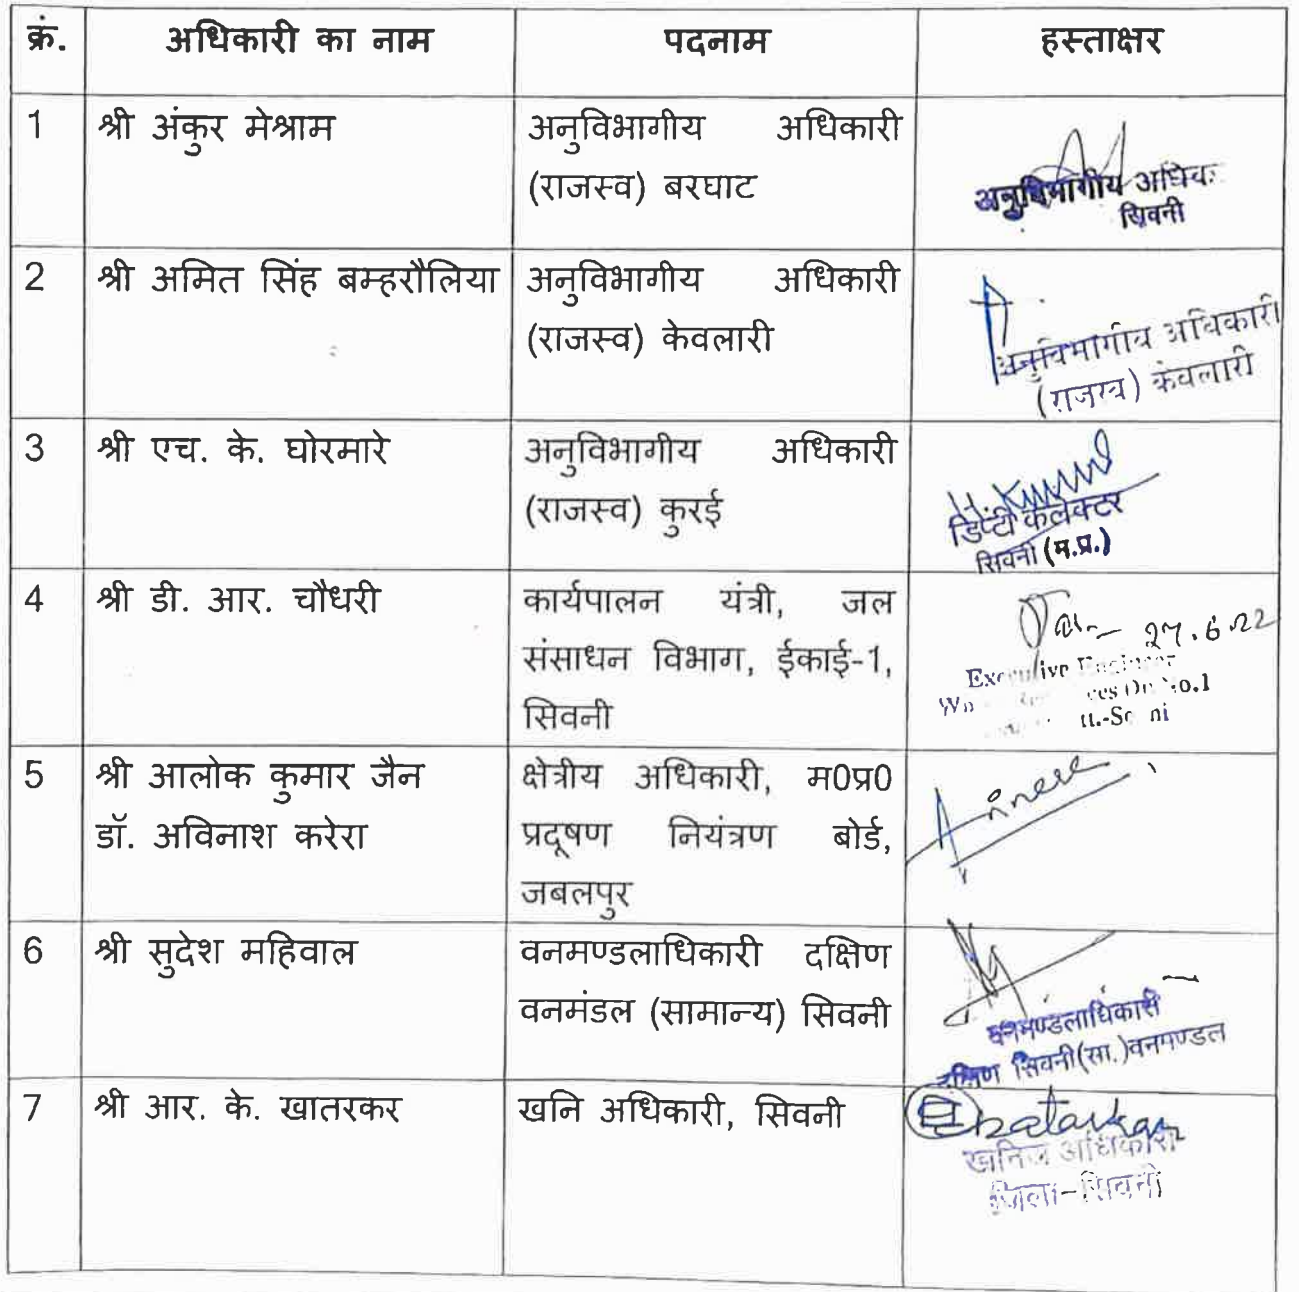 क्रं. अधिकारी का नाम पदनाम हस्ताक्षर
1 श्री अंकुर मेश्राम अनुविभागीय अधिकारी
(राजस्व) बरघाट
अनुविभागीय
सिवनी
2 श्री अमित सिंह बम्हरौलिया अनुविभागीय अधिकारी
(राजस्व) केवलारी
अनुविभागीय अधिकारी
(राजस्व) केवलारी
3 श्री एच. के. घोरमारे अनुविभागीय अधिकारी
(राजस्व) कुरई
डिप्टी कलेक्टर
सिवनी (म.प्र.)
4 श्री डी. आर. चौधरी कार्यपालन यंत्री, जल
संसाधन विभाग, ईकाई-1,
सिवनी
27.6.22
Executive Engineer
No.1
5 श्री आलोक कुमार जैन क्षेत्रीय अधिकारी, म0प्र0
डॉ. अविनाश करेरा प्रदूषण नियंत्रण बोर्ड,
जबलपुर
6 श्री सुदेश महिवाल वनमण्डलाधिकारी दक्षिण
वनमंडल (सामान्य) सिवनी
वनमण्डलाधिकारी
दक्षिण सिवनी(सा.)वनमण्डल
7 श्री आर. के. खातरकर खनि अधिकारी, सिवनी
खनिज अधिकारी
जिला-सिवनी